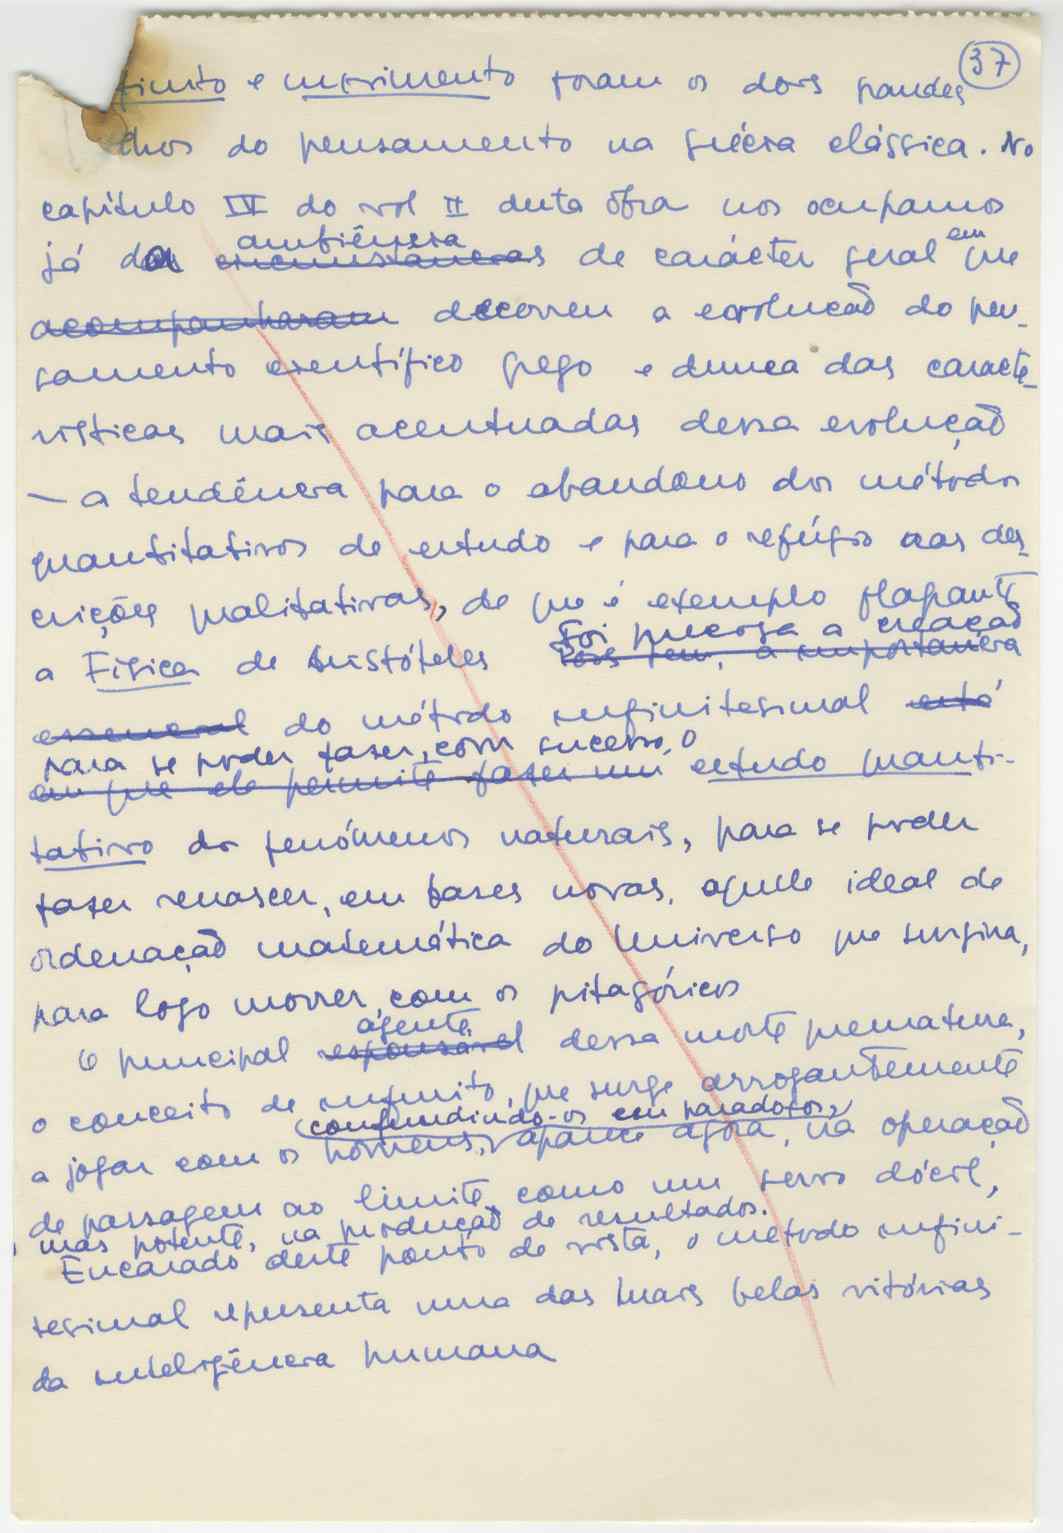 37
finito e movimento foram os dois grandes
do pensamento na Grécia clássica. No
capítulo IV do vol II desta obra nos ocupamos
ambiência em
já da circunstancias de carácter geral que
acompanharam decorreu a evolução do pen-
samento científico grego e duma das caracte-
rísticas mais acentuadas dessa evolução
— a tendência para o abandono dos métodos
quantitativos de estudo e para o refúgio nas des-
crições qualitativas, de que é exemplo flagrante
Foi precisa a creação
a Física de Aristóteles a importância
essencial do método infinitesimal está
para se poder fazer, com sucesso, o
em que ele permite fazer um estudo quanti-
tativo dos fenómenos naturais, para se poder
fazer renascer, em bases novas, aquele ideal de
ordenação matemática do Universo que surgira,
para logo morrer, com os pitagóricos
agente
O principal responsável dessa morte prematura,
o conceito de infinito, que surge arrogantemente
confundindo-os em paradoxos,
a jogar com os homens, aparece agora, na operação
de passagem ao limite, como um servo dócil,
mas potente, na produção de resultados.
Encarado deste ponto de vista, o método infini-
tesimal representa uma das mais belas vitórias
da inteligência humana